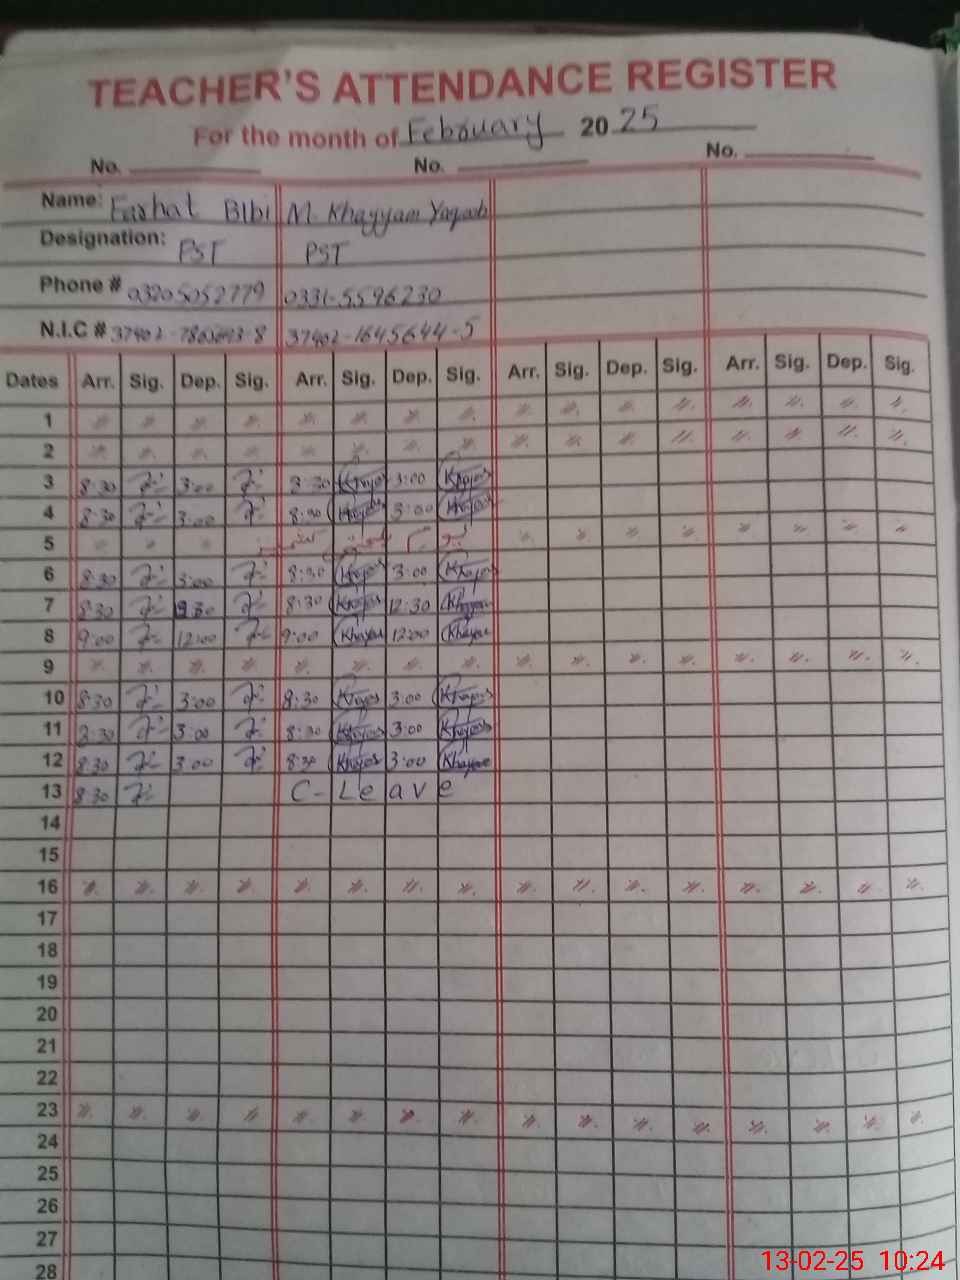 TEACHER'S ATTENDANCE REGISTER
For the month of February 2025
No. No. No.
Name: Farhat BIbi M. Khayyam Yaqoob
Designation: PST PST
Phone # 03205052779 0331-5596230
N.I.C # 37402-7865693-8 37402-1645644-5
Dates Arr. Sig. Dep. Sig. Arr. Sig. Dep. Sig. Arr. Sig. Dep. Sig. Arr. Sig. Dep. Sig.
1
2
3 8:30 3:00 8:30 3:00
4 8:30 3:00 8:30 3:00
5
6 8:30 3:00 8:30 3:00
7 8:30 8:30 12:30 Khayam
8 9:00 12:00 9:00 Khayam 12:00 Khayam
9
10 8:30 3:00 8:30 3:00
11 8:30 3:00 8:30 3:00
12 8:30 3:00 8:30 3:00 Khayam
13 8:30 C-Leave
14
15
16
17
18
19
20
21
22
23
24
25
26
27
28
13-02-25 10:24